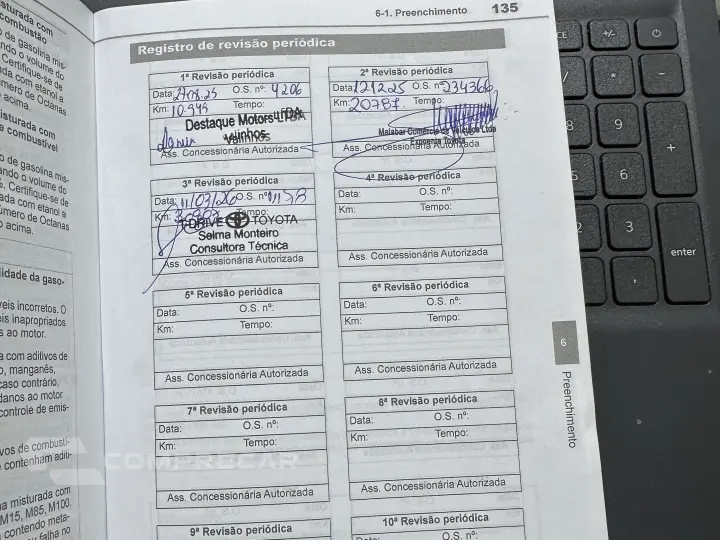 6-1. Preenchimento 135
Registro de revisão periódica
1ª Revisão periódica
Data: O.S. nº: 4206
Km: 10.949 Tempo:
Destaque Motors LTDA
Valinhos
Ass. Concessionária Autorizada
2ª Revisão periódica
Data: 121225 O.S. nº: 234366
Km: 20787 Tempo:
Malabar Comércio de Veículos Ltda
Exponente Toyota
Ass. Concessionária Autorizada
3ª Revisão periódica
Data: 11/03/26 O.S. nº: 1178
Km: Tempo:
T-DRIVE TOYOTA
Selma Monteiro
Consultora Técnica
Ass. Concessionária Autorizada
4ª Revisão periódica
Data: O.S. nº:
Km: Tempo:
Ass. Concessionária Autorizada
5ª Revisão periódica
Data: O.S. nº:
Km: Tempo:
Ass. Concessionária Autorizada
6ª Revisão periódica
Data: O.S. nº:
Km: Tempo:
Ass. Concessionária Autorizada
7ª Revisão periódica
Data: O.S. nº:
Km: Tempo:
Ass. Concessionária Autorizada
8ª Revisão periódica
Data: O.S. nº:
Km: Tempo:
Ass. Concessionária Autorizada
9ª Revisão periódica
10ª Revisão periódica
Data: O.S. nº:
6
Preenchimento
sturada com
combustão
o de gasolina mis-
ndo o volume do
Certifique-se de
ada com etanol a
úmero de Octanas
acima.
isturada com
e combustível
o de gasolina mis-
ando o volume do
. Certifique-se de
ada com etanol a
úmero de Octanas
o acima.
lidade da gaso-
veis incorretos. O
eis inapropriados
s ao motor.
a com aditivos de
o, manganês,
caso contrário,
danos ao motor
controle de emis-
vos de combustí-
contenham aditi-
na misturada com
M15, M85, M100,
contendo meta-
u falha no
COMPRECAR
CE
+/-
7
*
-
8
9
+
2
3
enter